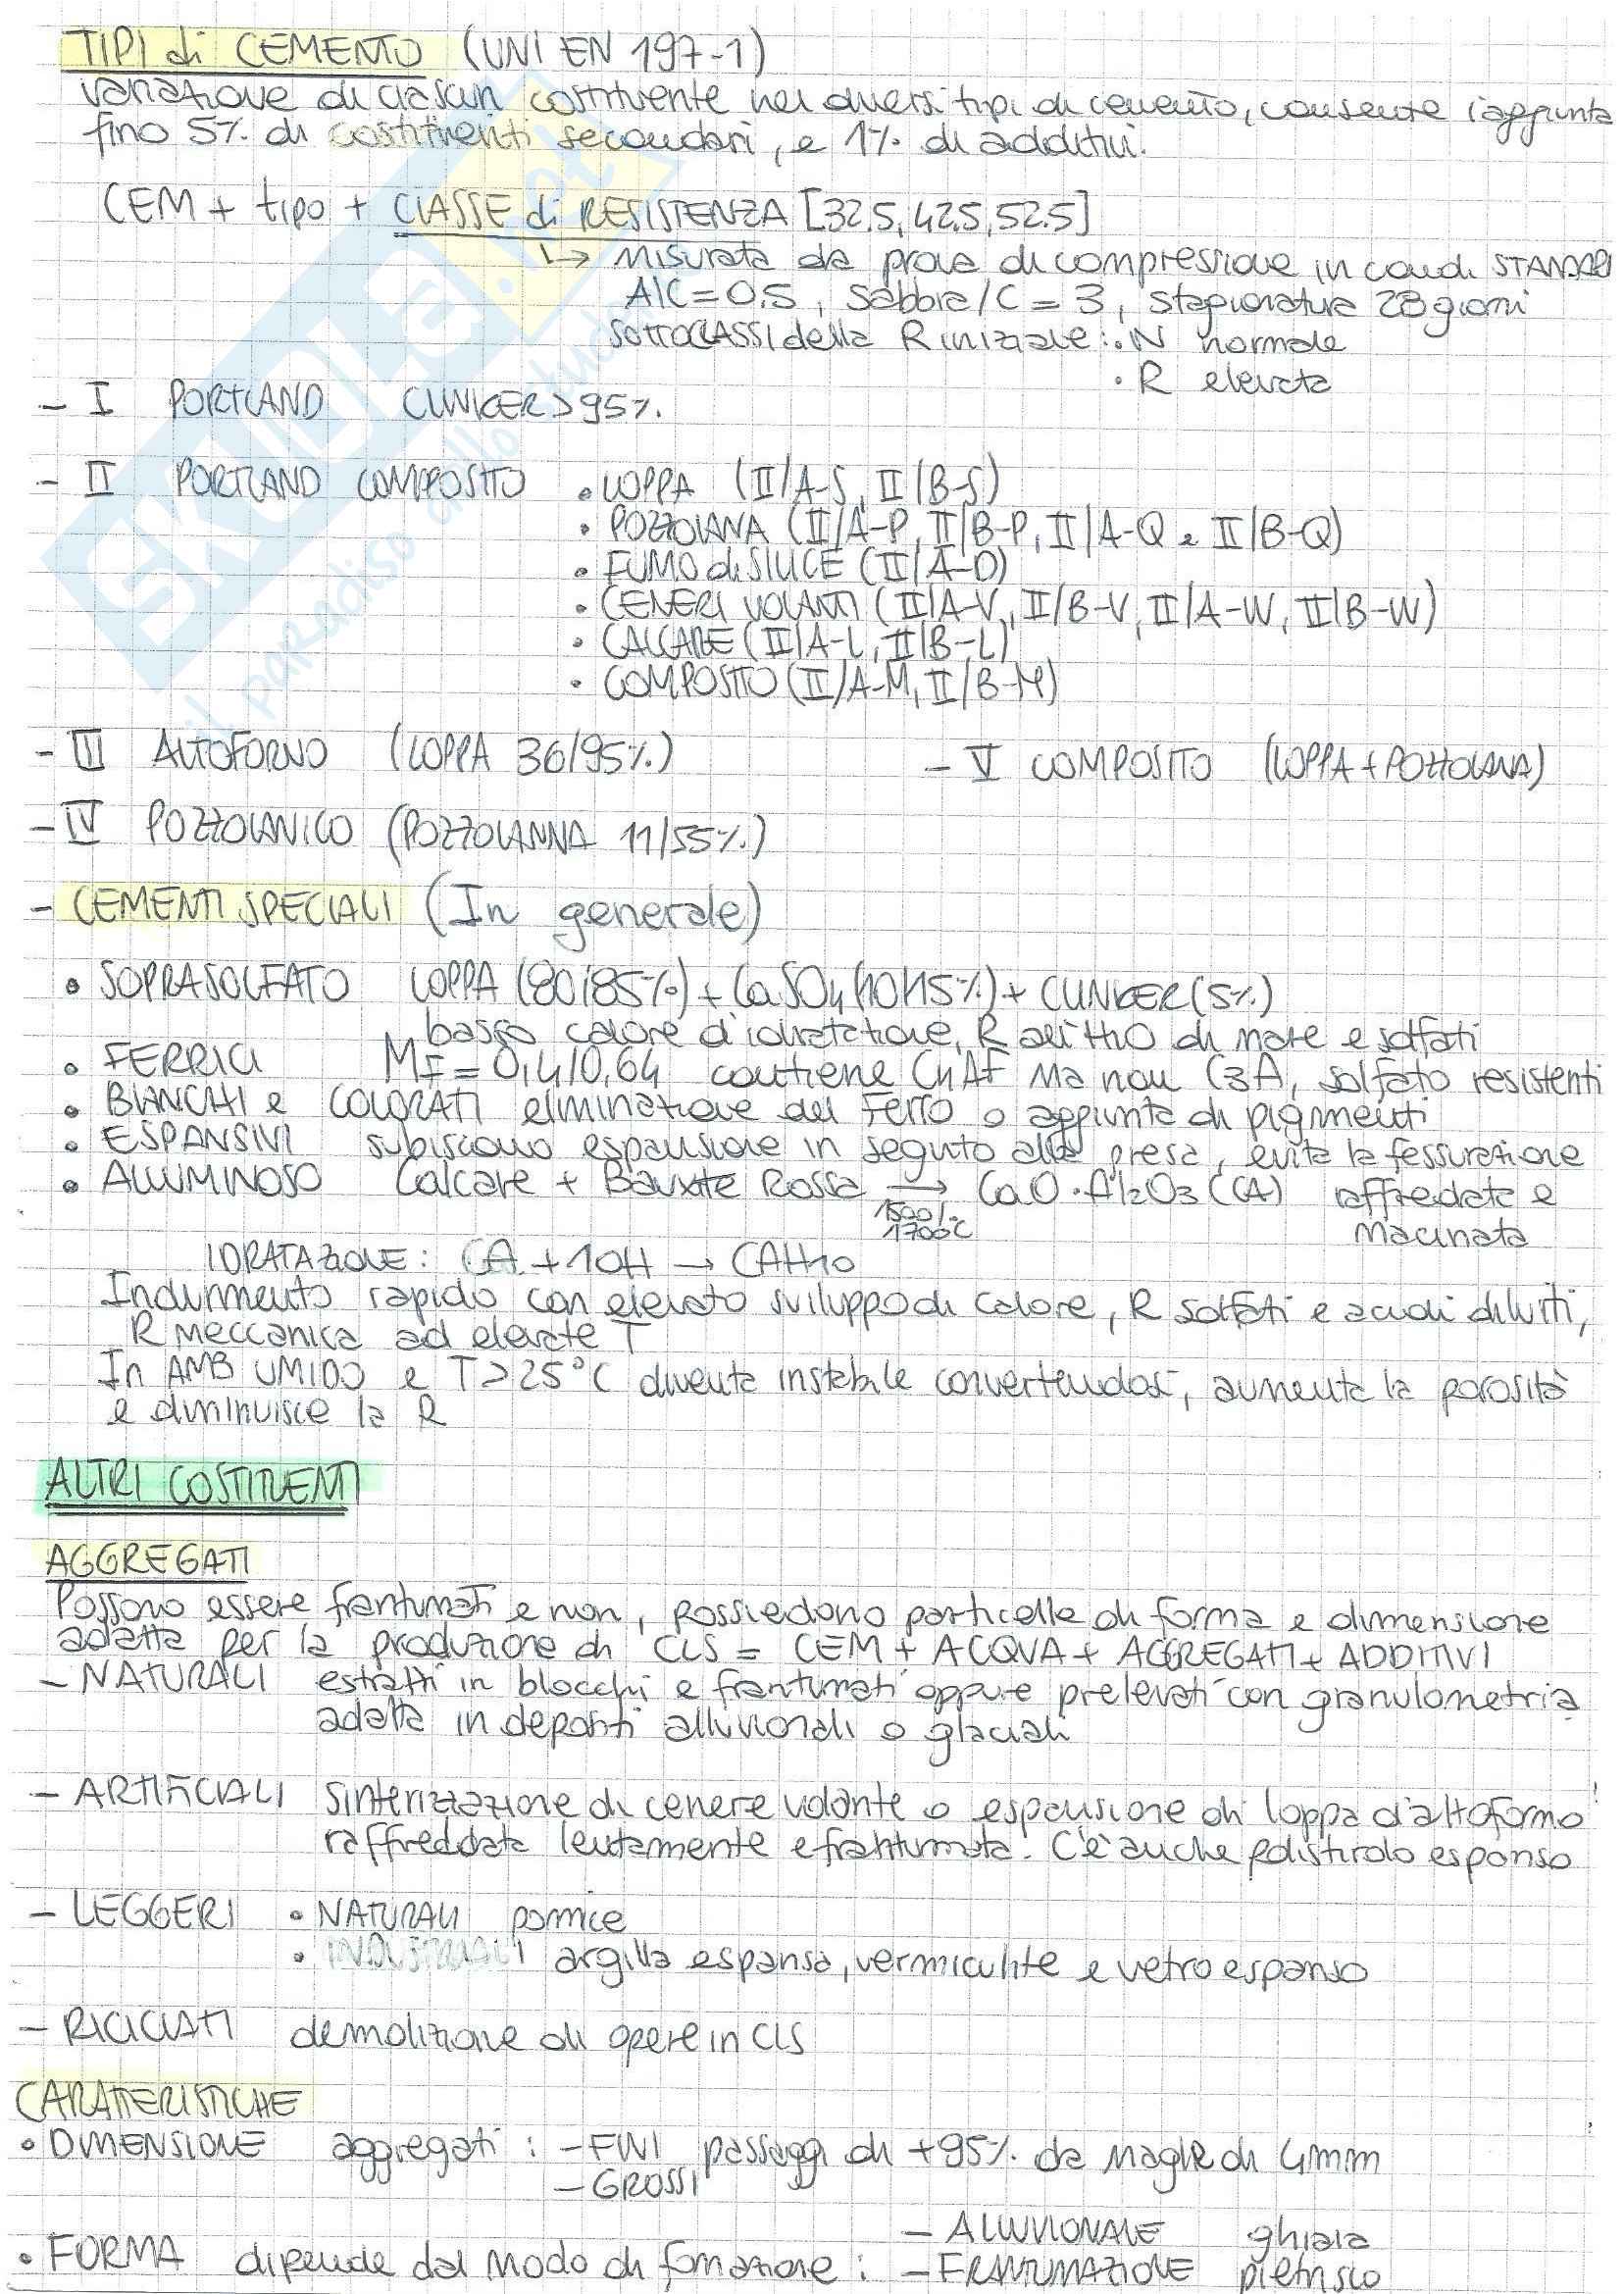 TIPI di CEMENTO (UNI EN 197-1)
variazione di ciascun costituente nei diversi tipi di cemento, consente l'aggiunta
fino 5% di costituenti secondari, e 1% di additivi.
CEM + tipo + CLASSE di RESISTENZA [32.5, 42.5, 52.5]
↳ misurata da prova di compressione in condi. STANDARD
A/C = 0.5, Sabbia/C = 3, stagionatura 28 giorni
SOTTOCLASSI della R iniziale: • N normale
• R elevata
- I PORTLAND CLINKER > 95%.
- II PORTLAND COMPOSITO • LOPPA (II/A-S, II/B-S)
• POZZOLANA (II/A-P, II/B-P, II/A-Q e II/B-Q)
• FUMO di SILICE (II/A-D)
• CENERI VOLANTI (II/A-V, II/B-V, II/A-W, II/B-W)
• CALCARE (II/A-L, II/B-L)
• COMPOSITO (II/A-M, II/B-M)
- III ALTOFORNO (LOPPA 36/95%.) - V COMPOSITO (LOPPA + POZZOLANA)
- IV POZZOLANICO (POZZOLANNA 11/55%.)
- CEMENTI SPECIALI (In generale)
• SOPRASOLFATO LOPPA (80/85%) + CaSO4 (10/15%) + CLINKER (5%)
basso calore d'idratazione, R all'attco di mare e solfati
• FERRICI MF = 0,4/0,64 contiene C4AF ma non C3A, solfato resistenti
• BIANCHI e COLORATI eliminazione del Ferro o aggiunta di pigmenti
• ESPANSIVI subiscono espansione in seguito alla presa, evita la fessurazione
• ALLUMINOSO Calcare + Bauxite Rossa → CaO·Al2O3 (CA) raffreddata e
1500/1700°C macinata
IDRATAZIONE: CA + 10H → CAH10
Indurimento rapido con elevato sviluppo di calore, R solfati e acidi diluiti,
R meccanica ad elevate T
In AMB UMIDO e T > 25°C diventa instabile convertendosi, aumenta la porosità
e diminuisce la R
ALTRI COSTITUENTI
AGGREGATI
Possono essere frantumati e non, possiedono particelle di forma e dimensione
adatta per la produzione di CLS = CEM + ACQUA + AGGREGATI + ADDITIVI
- NATURALI estratti in blocchi e frantumati oppure prelevati con granulometria
adatta in depositi alluvionali o glaciali
- ARTIFICIALI Sinterizzazione di cenere volante o espansione di loppa d'altoforno
raffreddata lentamente e frantumata. C'è anche Polistirolo espanso
- LEGGERI • NATURALI pomice
• INDUSTRIALI argilla espansa, vermiculite e vetro espanso
- RICICLATI demolizione di opere in CLS
CARATTERISTICHE
• DIMENSIONE aggregati: - FINI passaggi di +95% da maglie di 4mm
- GROSSI
• FORMA dipende dal modo di formazione: - ALLUVIONALE ghiaia
- FRANTUMAZIONE pietrisco
SKUOLA.net
il paradiso dello studente